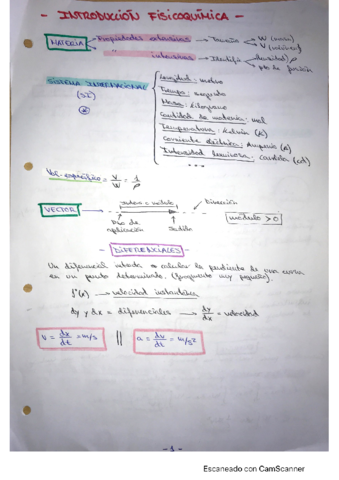 - INTRODUCCIÓN FISICOQUÍMICA -
MATERIA
Propiedades extensivas → Tamaño
W (masa)
V (volumen)
intensivas → Identif.
Densidad ρ
Pto. de fusión
SISTEMA INTERNACIONAL
(SI)
Longitud: metro
Tiempo: segundo
Masa: kilogramo
Cantidad de materia: mol
Temperatura: Kelvin (K)
Corriente eléctrica: Amperio (A)
Intensidad luminosa: candela (cd)
...
Vol. específico = V/W = 1/ρ
VECTOR
Dirección
Pto de aplicación
Sentido
módulo > 0
- DIFERENCIALES -
Un diferencial calcular la pendiente de una curva
en un punto determinado. (fragmento muy pequeño).
f'(x) → velocidad instantánea
dy y dx = diferenciales → dy/dx = velocidad
v = dx/dt = m/s || a = dv/dt = m/s²
- 1 -
Escaneado con CamScanner